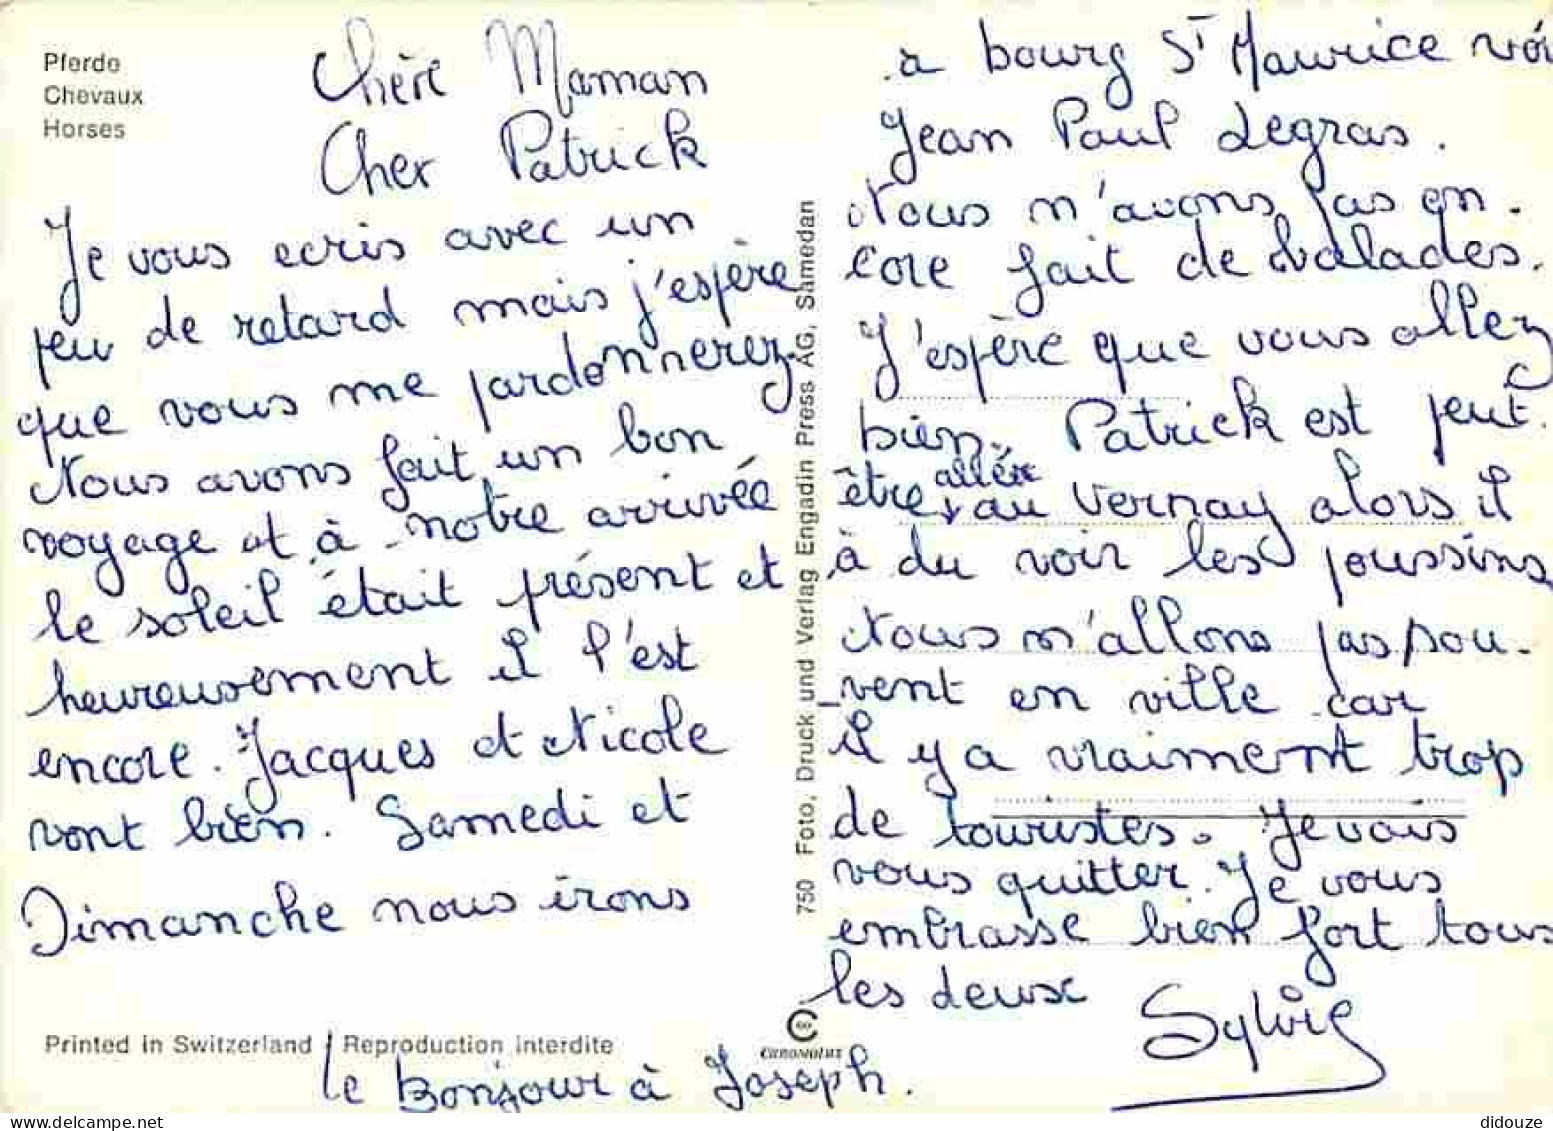 Pferde
Chevaux
Horses
Chère Maman
Cher Patrick
Je vous ecris avec un
peu de retard mais j'espère
que vous me pardonnerez.
Nous avons fait un bon
voyage et à notre arrivée
le soleil était présent et
heureusement il l'est
encore. Jacques et Nicole
vont bien. Samedi et
Dimanche nous irons
Printed in Switzerland / Reproduction interdite
le Bonjour à Joseph.
750 Foto, Druck und Verlag Engadin Press AG, Samedan
CHROMOLUX
à bourg St Maurice voi
Jean Paul Legras.
Nous n'avons pas en-
core fait de balades.
J'espère que vous allez
bien. Patrick est peut-
allée
être au Vernay alors il
à du voir les poussins
Nous n'allons pas sou-
vent en ville car
il y a vraiment trop
de touristes. Je vais
vous quitter. Je vous
embrasse bien fort tous
les deux
Sylvie
didouze